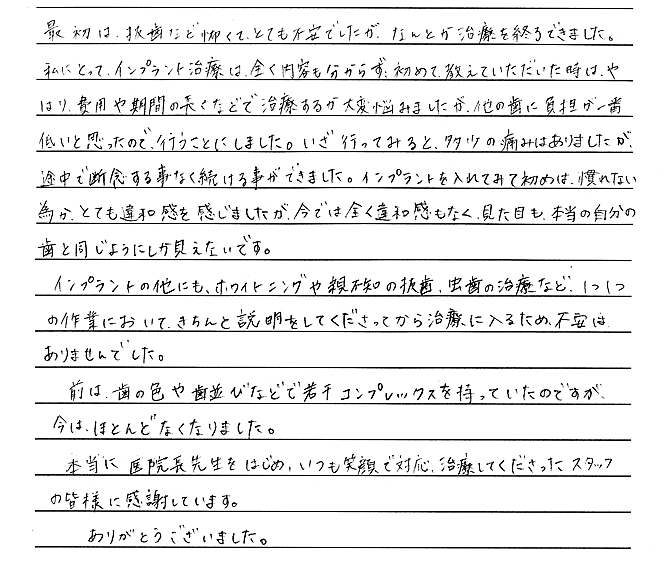 最初は、抜歯など怖くて、とても不安でしたが、なんとか治療を終えるできました。
私にとって、インプラント治療は、全く内容も分からず、初めて、教えていただいた時は、や
はり、費用や期間の長くなどで治療するか大変悩みましたが、他の歯に負担が一番
低いと思ったので、行うことにしました。いざ行ってみると、多少の痛みはありましたが、
途中で断念する事なく続ける事ができました。インプラントを入れてみて初めは、慣れない
為か、とても違和感を感じましたが、今では全く違和感もなく、見た目も、本当の自分の
歯と同じようにしか見えないです。
インプラントの他にも、ホワイトニングや親不知の抜歯、虫歯の治療など、1つ1つ
の作業において、きちんと説明をしてくださってから治療に入るため、不安は
ありませんでした。
前は、歯の色や歯並びなどで若干コンプレックスを持っていたのですが、
今は、ほとんどなくなりました。
本当に医院長先生をはじめ、いつも笑顔で対応、治療してくださったスタッフ
の皆様に感謝しています。
ありがとうございました。